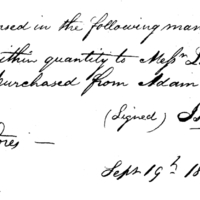 used in the following man
within quantity to Messrs D
purchased from Adam
(Signed)
Sept 19th 18